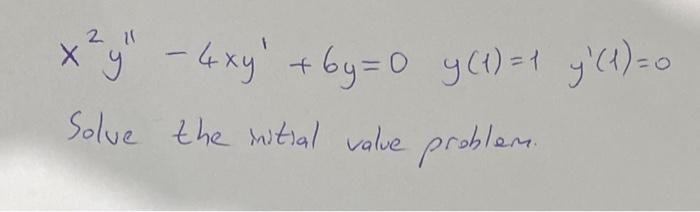 x²y" - 4xy' + 6y = 0 y(1) = 1 y'(1) = 0
Solve the initial value problem.